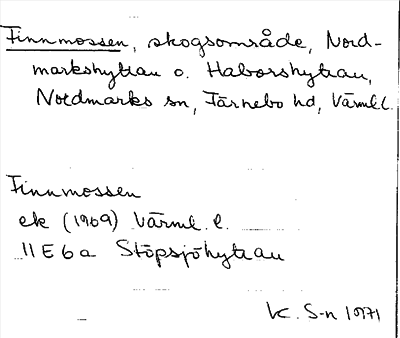 Finnmossen, skogsområde, Nord-
markshyttan o. Haborshyttan,
Nordmarks sn, Färnebo hd, Värml.l.
Finnmossen
ek (1969) Värml. l.
11 E 6 a Stöpsjöhyttan
K. S-n 1971